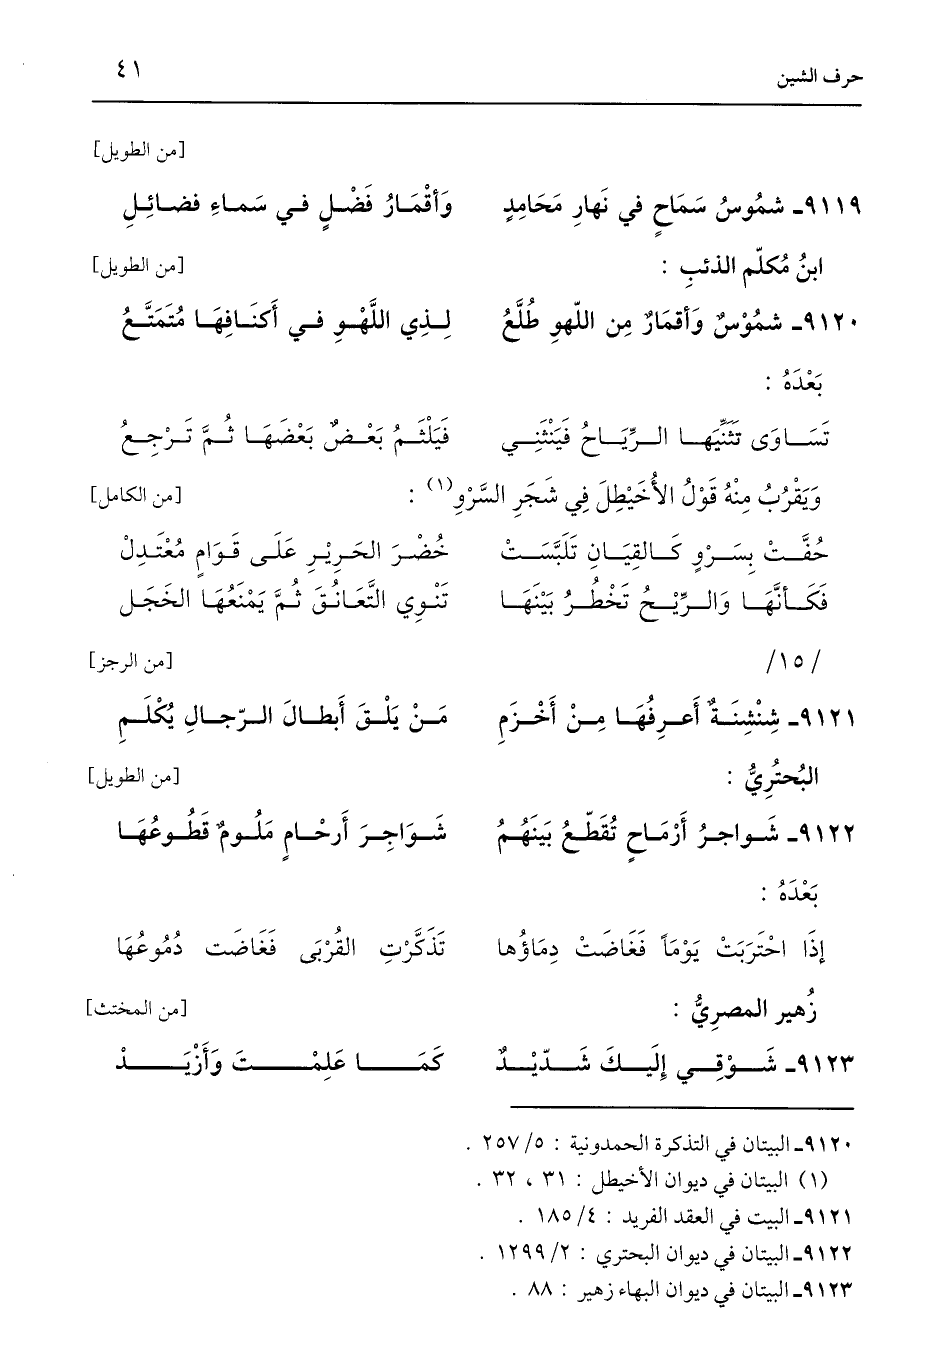 حرف الشين ٤١
[من الطويل]
٩١١٩ـ شمُوسُ سَمَاحٍ في نَهارِ مَحَامِدٍ وَأقْمَـارُ فَضْـلٍ فـي سَمـاءِ فضـائـلِ
ابنُ مُكلّم الذئبِ : [من الطويل]
٩١٢٠ـ شمُوْسٌ وَأقمَارٌ مِن اللّهوِ طُلَّعُ لِـذِي اللَّهْـوِ فـي أكنَـافِهَـا مُتَمَتَّعُ
بَعْدَهُ :
تَسَـاوَى تَثَنِّيَهـا الـرِّيَـاحُ فَيَنْثَنِـي فَيَلْثَـمُ بَعْـضٌ بَعْضَهَـا ثُـمَّ تَـرْجِـعُ
وَيَقْرُبُ مِنْهُ قَوْلُ الأُخَيْطِلَ فِي شَجَرِ السَّرْوِ(١) : [من الكامل]
حُفَّـتْ بِسَـرْوٍ كَـالقِيَـانِ تَلَبَّسَـتْ خُضْـرَ الحَـرِيْـرِ عَلَـى قَـوَامٍ مُعْتَـدِلْ
فَكَـأنَّهَـا وَالـرِّيْـحُ تَخْطُـرُ بَيْنَهَـا تَنْـوِي التَّعَانُـقَ ثُـمَّ يَمْنَعُهَـا الخَجَـل
/١٥/ [من الرجز]
٩١٢١ـ شِنْشِنَـةٌ أعـرِفُهَـا مِـنْ أخْـزَمِ مَـنْ يَلْـقَ أبطـالَ الـرّجـالِ يُكْلَـمِ
البُحتُرِيُّ : [من الطويل]
٩١٢٢ـ شَـواجـرُ أرْمَـاحٍ تُقَطّـعُ بَينَهُـمُ شَـوَاجِـرَ أرحَـامٍ مَلُـومٌ قَطُـوعُهَـا
بَعْدَهُ :
إذَا احْتَرَبَتْ يَوْمَاً فَفَاضَتْ دِمَاؤُها تَذَكَّرْتِ القُرْبَى فَفَاضَت دُمُوعُهَا
زُهير المصرِيُّ : [من المختث]
٩١٢٣ـ شَـوْقِـي إلَيـكَ شَـدّيْـدٌ كَمَـا عَلِمْـتَ وَأزْيَـدْ
٩١٢٠ـ البيتان في التذكرة الحمدونية : ٥/ ٢٥٧ .
(١) البيتان في ديوان الأخيطل : ٣١ ، ٣٢ .
٩١٢١ـ البيت في العقد الفريد : ٤/ ١٨٥ .
٩١٢٢ـ البيتان في ديوان البحتري : ٢/ ١٢٩٩ .
٩١٢٣ـ البيتان في ديوان البهاء زهير : ٨٨ .